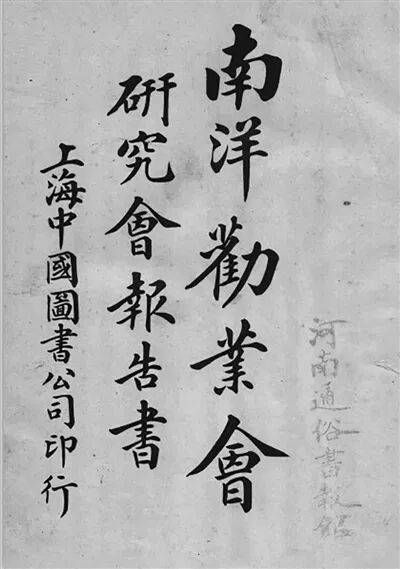 河南通俗書報館
南洋勸業會
研究會報告書
上海中國圖書公司印行